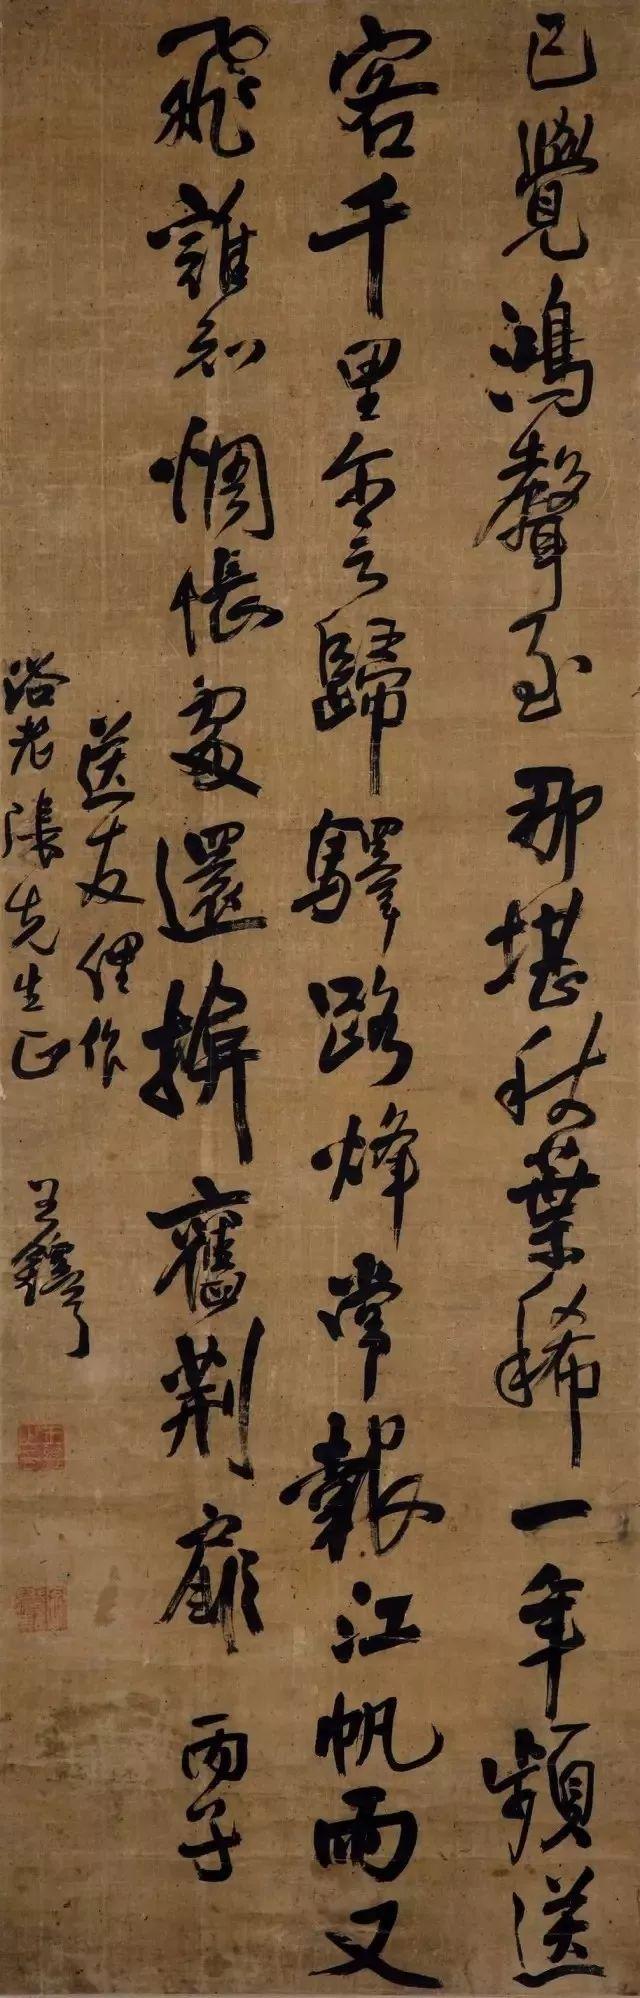 已覺鴻聲至那堪秋葉稀一年頻送
客千里爾言歸驛路烽常報江帆雨又
飛誰知惆悵處還掩舊荊扉 丙子
送友俚作
浴老張先生正 王鐸